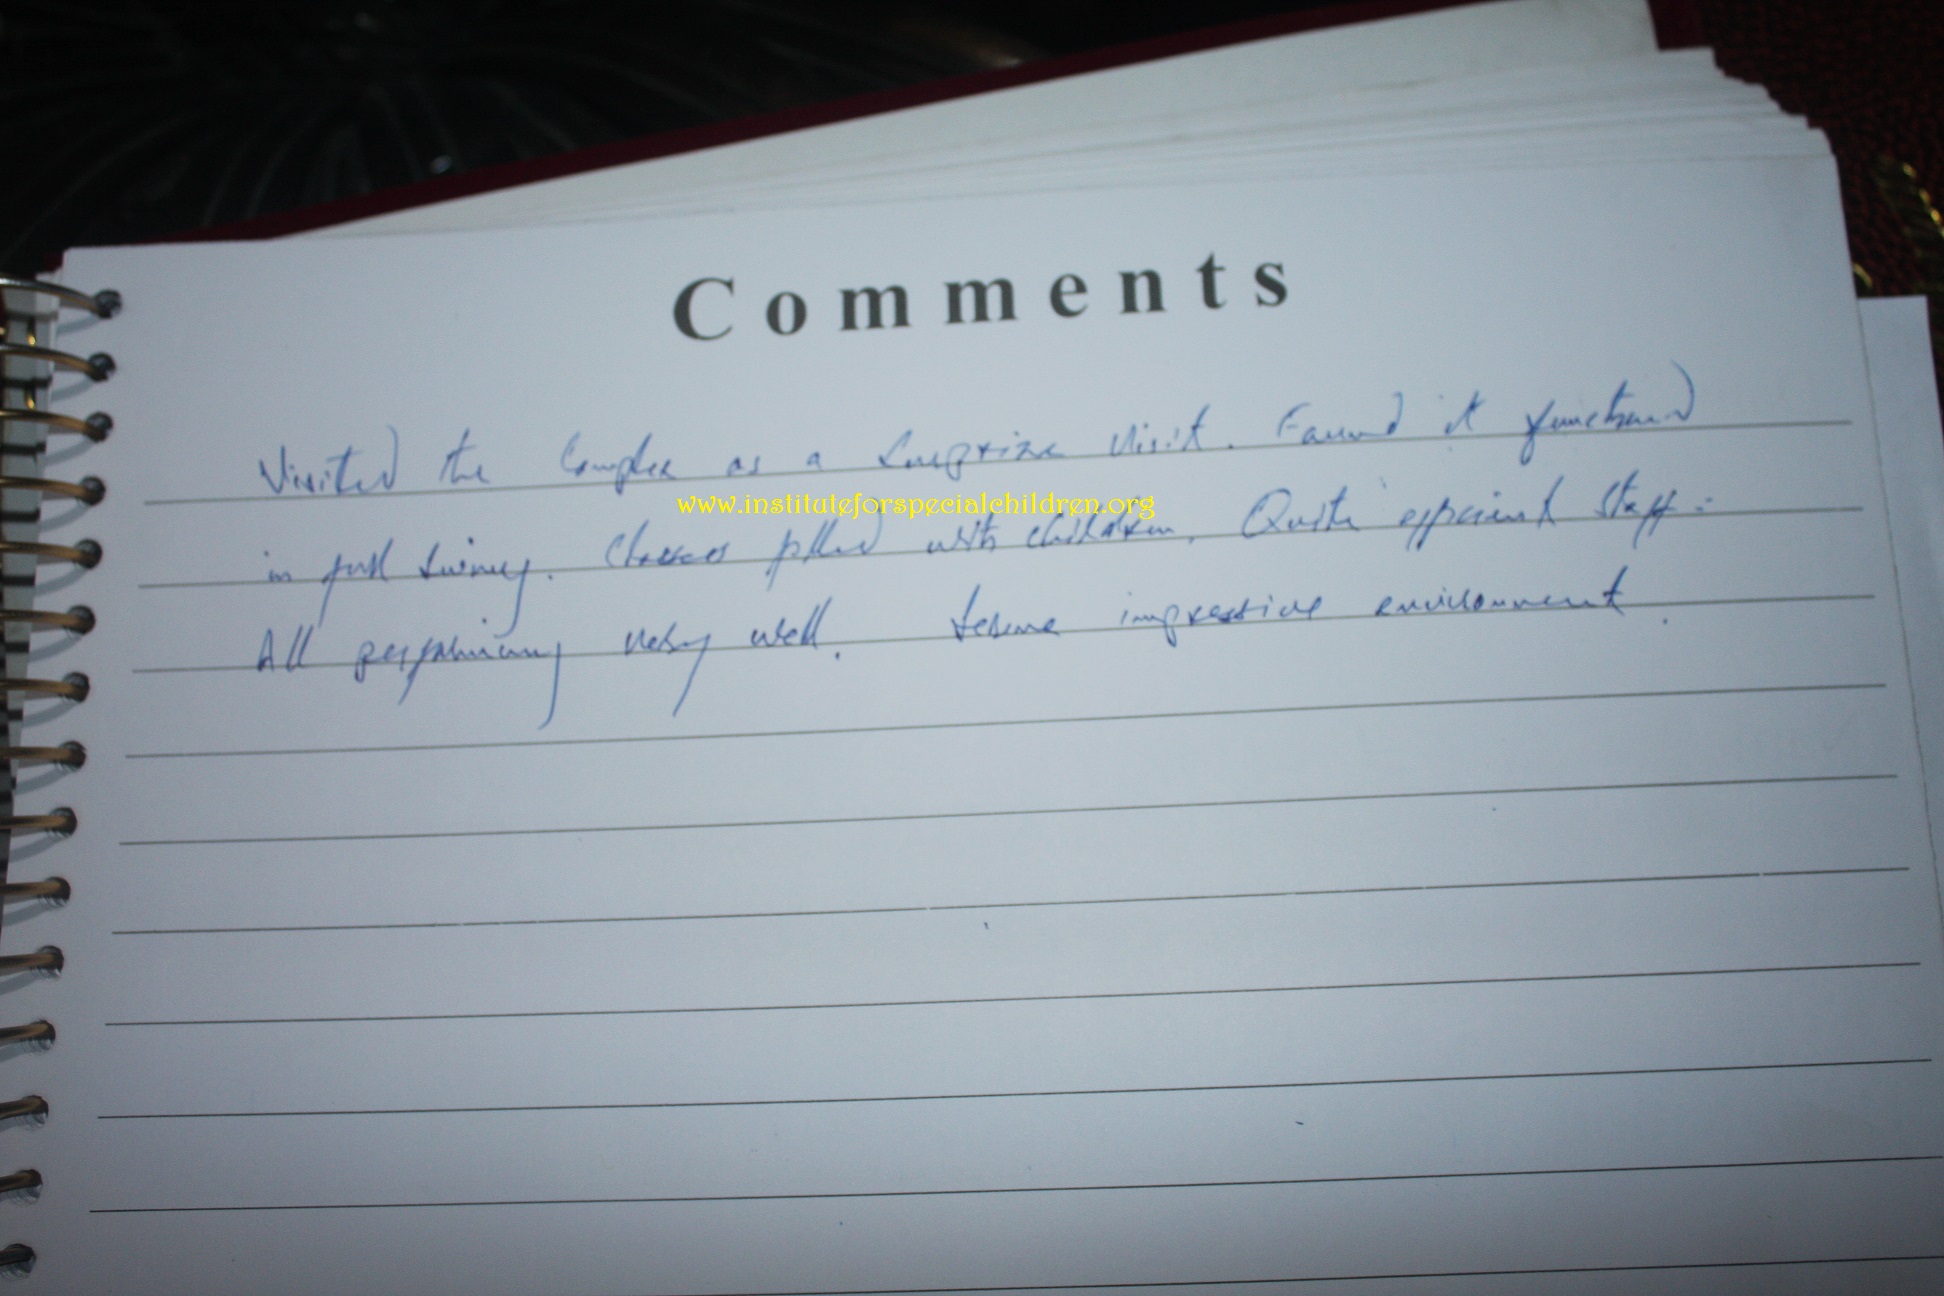 Comments
Visited the Complex as a Surprize Visit. Found it functional
www.instituteforspecialchildren.org
in full swing. Classes filled with children. Quite efficient Staff.
All performing very well. impressive environment.